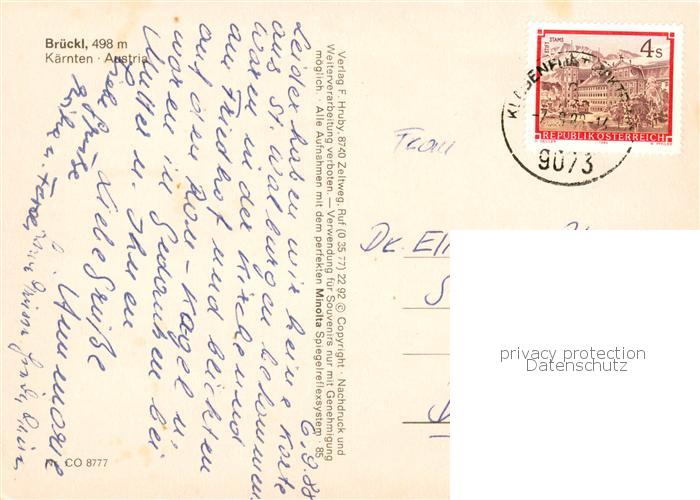 Brückl, 498 m
Kärnten · Austria
STIFT STAMS
4 s
REPUBLIK ÖSTERREICH
KLAGENFURT
9073
Verlag F. Hruby, 8740 Zeltweg, Ruf (0 35 77) 22 92 © Copyright · Nachdruck und
Weiterverarbeitung verboten. — Verwendung für Souvenirs nur mit Genehmigung
möglich · Alle Aufnahmen mit dem perfekten Minolta Spiegelreflexsystem · 85
6.9.88
Leider haben wir keine Karte
aus St. Walburgen bekommen
waren in der Kirche und
am Friedhof und blickten
auf den Kogel u.
waren in Gedanken bei
Mutter u. Ihnen
Liebe Grüße
Annemarie
Viele Grüße
Frau
Dr.
CO 8777
privacy protection
Datenschutz